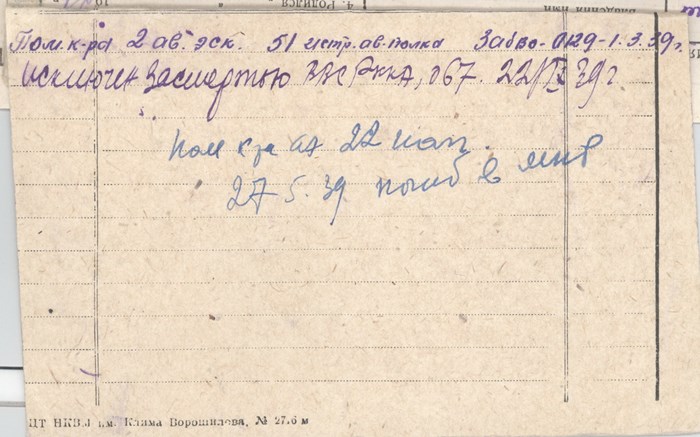 4. Родился
Пом. к-ра 2 ав. эск. 51 истр. ав. полка Забво-0129-1.3.39г.
Исключен за смертью РККА, 067. 22/IX 39г
Пом к-ра аэ 22 иап.
27 5. 39 погиб в МНР
ЦТ НКВД им. Клима Ворошилова, № 27.6 м